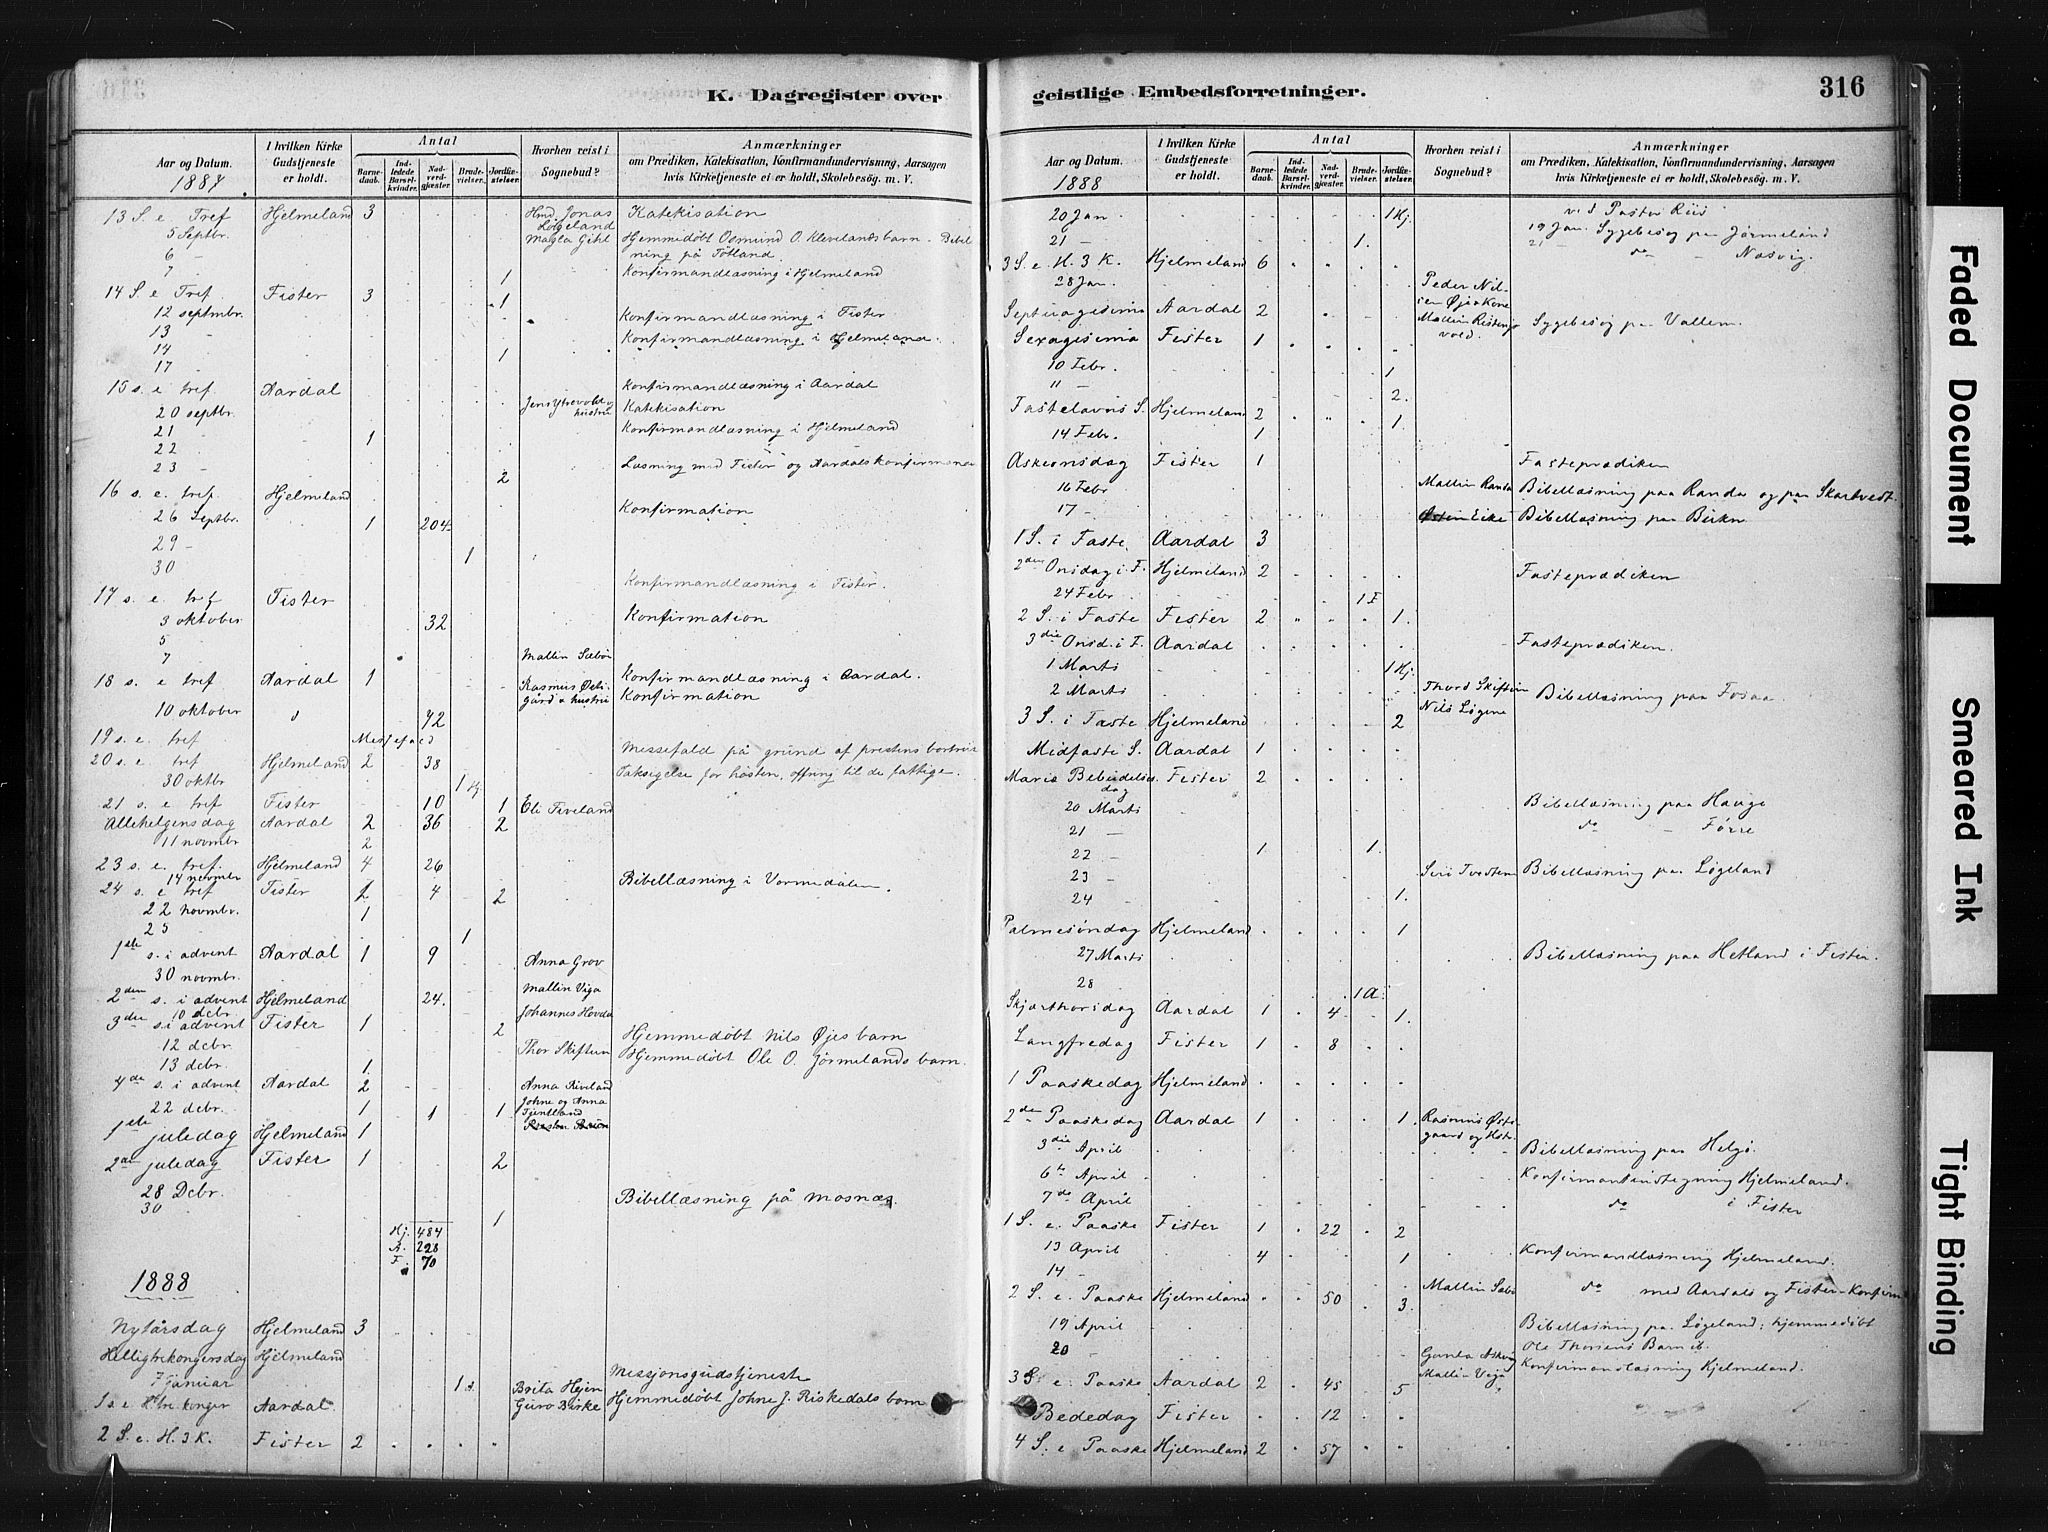 K. Dagregister over
Aar og Datum.
1887
I hvilken Kirke Gudstjeneste er holdt.
Antal
Barnedaab.
Indledede Barselkvinder.
Nadverdgjæster.
Brudevielser.
Jordfæstelser.
Hvorhen reist i Sognebud?
Anmærkninger
om Prædiken, Katekisation, Konfirmandundervisning, Aarsagen
hvis Kirketjeneste ei er holdt, Skolebesøg. m. V.
13 S. e. Tref Hjelmeland 3 Katekisation
5 Septbr. Hjemmedøbt Osmund O. Klevelands barn.
6 -
7 - 1 Konfirmandlæsning i Hjelmeland
14 S. e Tref Fister 3 1
12 septmbr. Konfirmandlæsning i Fister
13 - Konfirmandlæsning i Hjelmeland.
14
17 - 1
15 s. e tref Aardal Konfirmandlæsning i Aardal
20 septbr. Katekisation
21 - Konfirmandlæsning i Hjelmeland
22 - 1
23 - 2 Læsning med Fister og Aardals konfirmander
16 s. e. tref Hjelmeland Konfirmation
26 Septbr. 1 204
29 -
30 1
17 s. e. tref Fister Konfirmandlæsning i Fister.
3 oktober 32 Konfirmation
5
7 Mallin Sæbø
18 s. e tref Aardal 1 Konfirmandlæsning i Aardal.
10 oktober 72 Konfirmation
19 s. e. tref Messefald Messefald på grund af prestens bortreise
20 s. e tref Hjelmeland 2 38 Taksigelse for høsten, offring til de fattige.
30 oktbr 1 Hj
21 s. e tref Fister 10 1 Eli Tveland
Allehelgensdag Aardal 2 36 2
11 novmbr 2
23 s. e. tref. Hjelmeland 4 26
14 novmbr Bibellæsning i Vormedalen.
24 s. e tref Fister 2 4 2
22 novmbr. 1
25 1
1ste s. i advent Aardal 1 9
30 novmbr. Anna Grov
2den s. i advent Hjelmeland 24. Mallin Viga
10 dcbr. Johannes Hovda
3die s. i advent Fister 1 2 Hjemmedøbt Nils Øjes barn
12 dcbr. Thor Skiftun Hjemmedøbt Ole O. Jørmelands barn.
13 dcbr. 1.
4de s. i advent Aardal 2 Anna Riveland
22 dcbr. 1 1 1 Johne og Anna Tjentland
1ste juledag Hjelmeland 1
2de juledag Fister 1 2
28 Dcbr.
30 1 Bibellæsning på Mosnes.
Hj. 484
A. 228
F. 70
1888
Nytårsdag Hjelmeland 3
Helligtrekongersdag Hjelmeland
7 januar Messjonsgudstjeneste
1 s e H. tre konger Aardal Guro Birke Hjemmedøbt Johne J. Riskedals barn
2 S. e. H. 3 K. Fister 2
geistlige Embedsforretninger.
316
Aar og Datum.
1888
I hvilken Kirke Gudstjeneste er holdt.
Antal
Barnedaab.
Indledede Barselkvinder.
Nadverdgjæster.
Brudevielser.
Jordfæstelser.
Hvorhen reist i Sognebud?
Anmærkninger
om Prædiken, Katekisation, Konfirmandundervisning, Aarsagen
hvis Kirketjeneste ei er holdt, Skolebesøg. m. V.
20 Jan. 1 Hj. ved Pastor Riis
21 - 1. 19 Jan. Sygebesøg paa Jørmeland
21 - do - Næsvig.
3 S. e H. 3 K. Hjelmeland 6
28 Jan. Peder Nilsen Øje & Kone
Septuagesima Aardal 2 Sygebesøg paa Vallem.
Sexagesima Fister 1
10 Febr. 1
11 - 2.
Fastelavns S. Hjelmeland 2 1.
14 Febr. 1
Askeonsdag Fister 1 Fasteprædiken
16 Febr Mallin Randa Bibellæsning paa Randa og paa Skartvedt.
17 - Østen Eike Bibellæsning paa Birkn
1 S. i Faste. Aardal 3
2den Onsdag i F. Hjelmeland 2 Fasteprædiken
24 Febr 1 F
2 S. i Faste Fister 2 1.
3die Onsd. i F. Aardal Fasteprædiken.
1 Marts 1 Hj.
2 Marts Thord Skiftun Bibellæsning paa Fosaa
3 S. i Faste Hjelmeland 2
Midfaste S. Aardal 1
Mariæ Bebudelsesdag Fister 2
20 Marts Bibellæsning paa Hauge
21 - do - Førre
22 - 1 1.
23 - Siri Tvesten Bibellæsning paa Løgeland
24 1.
Palmesøndag Hjelmeland 1
27 Marts Bibellæsning paa Hetland i Fister.
28 1 A.
Skjærthorsdag Aardal 1 4 1.
Langfredag Fister 1 8
1 Paaskedag Hjelmeland
2den Paaskedag Aardal 1 1 Rasmus Østegaard og Hstr.
3die April Bibellæsning paa Helgø.
6te April Konfirmantinstegning Hjelmeland.
7de April do i Fister
1 S. e. Paaske Fister 1 22 2
13 April 4 1 Konfirmandlæsning Hjelmeland.
14 -
2 S. e. Paaske Hjelmeland 50 3. Mallin Sæbø do med Aardals og Fister-Konfirm
19 April Bibellæsning paa Løgeland; hjemmedøbt
20 Ole Thorsens Barn ib.
3 S. e. Paaske Aardal 2 45 5 Mallin Viga Konfirmanlæsning Hjelmeland.
Bededag Fister 12
4 S. e Paaske Hjelmeland 2 57
Faded Document
Smeared Ink
Tight Binding